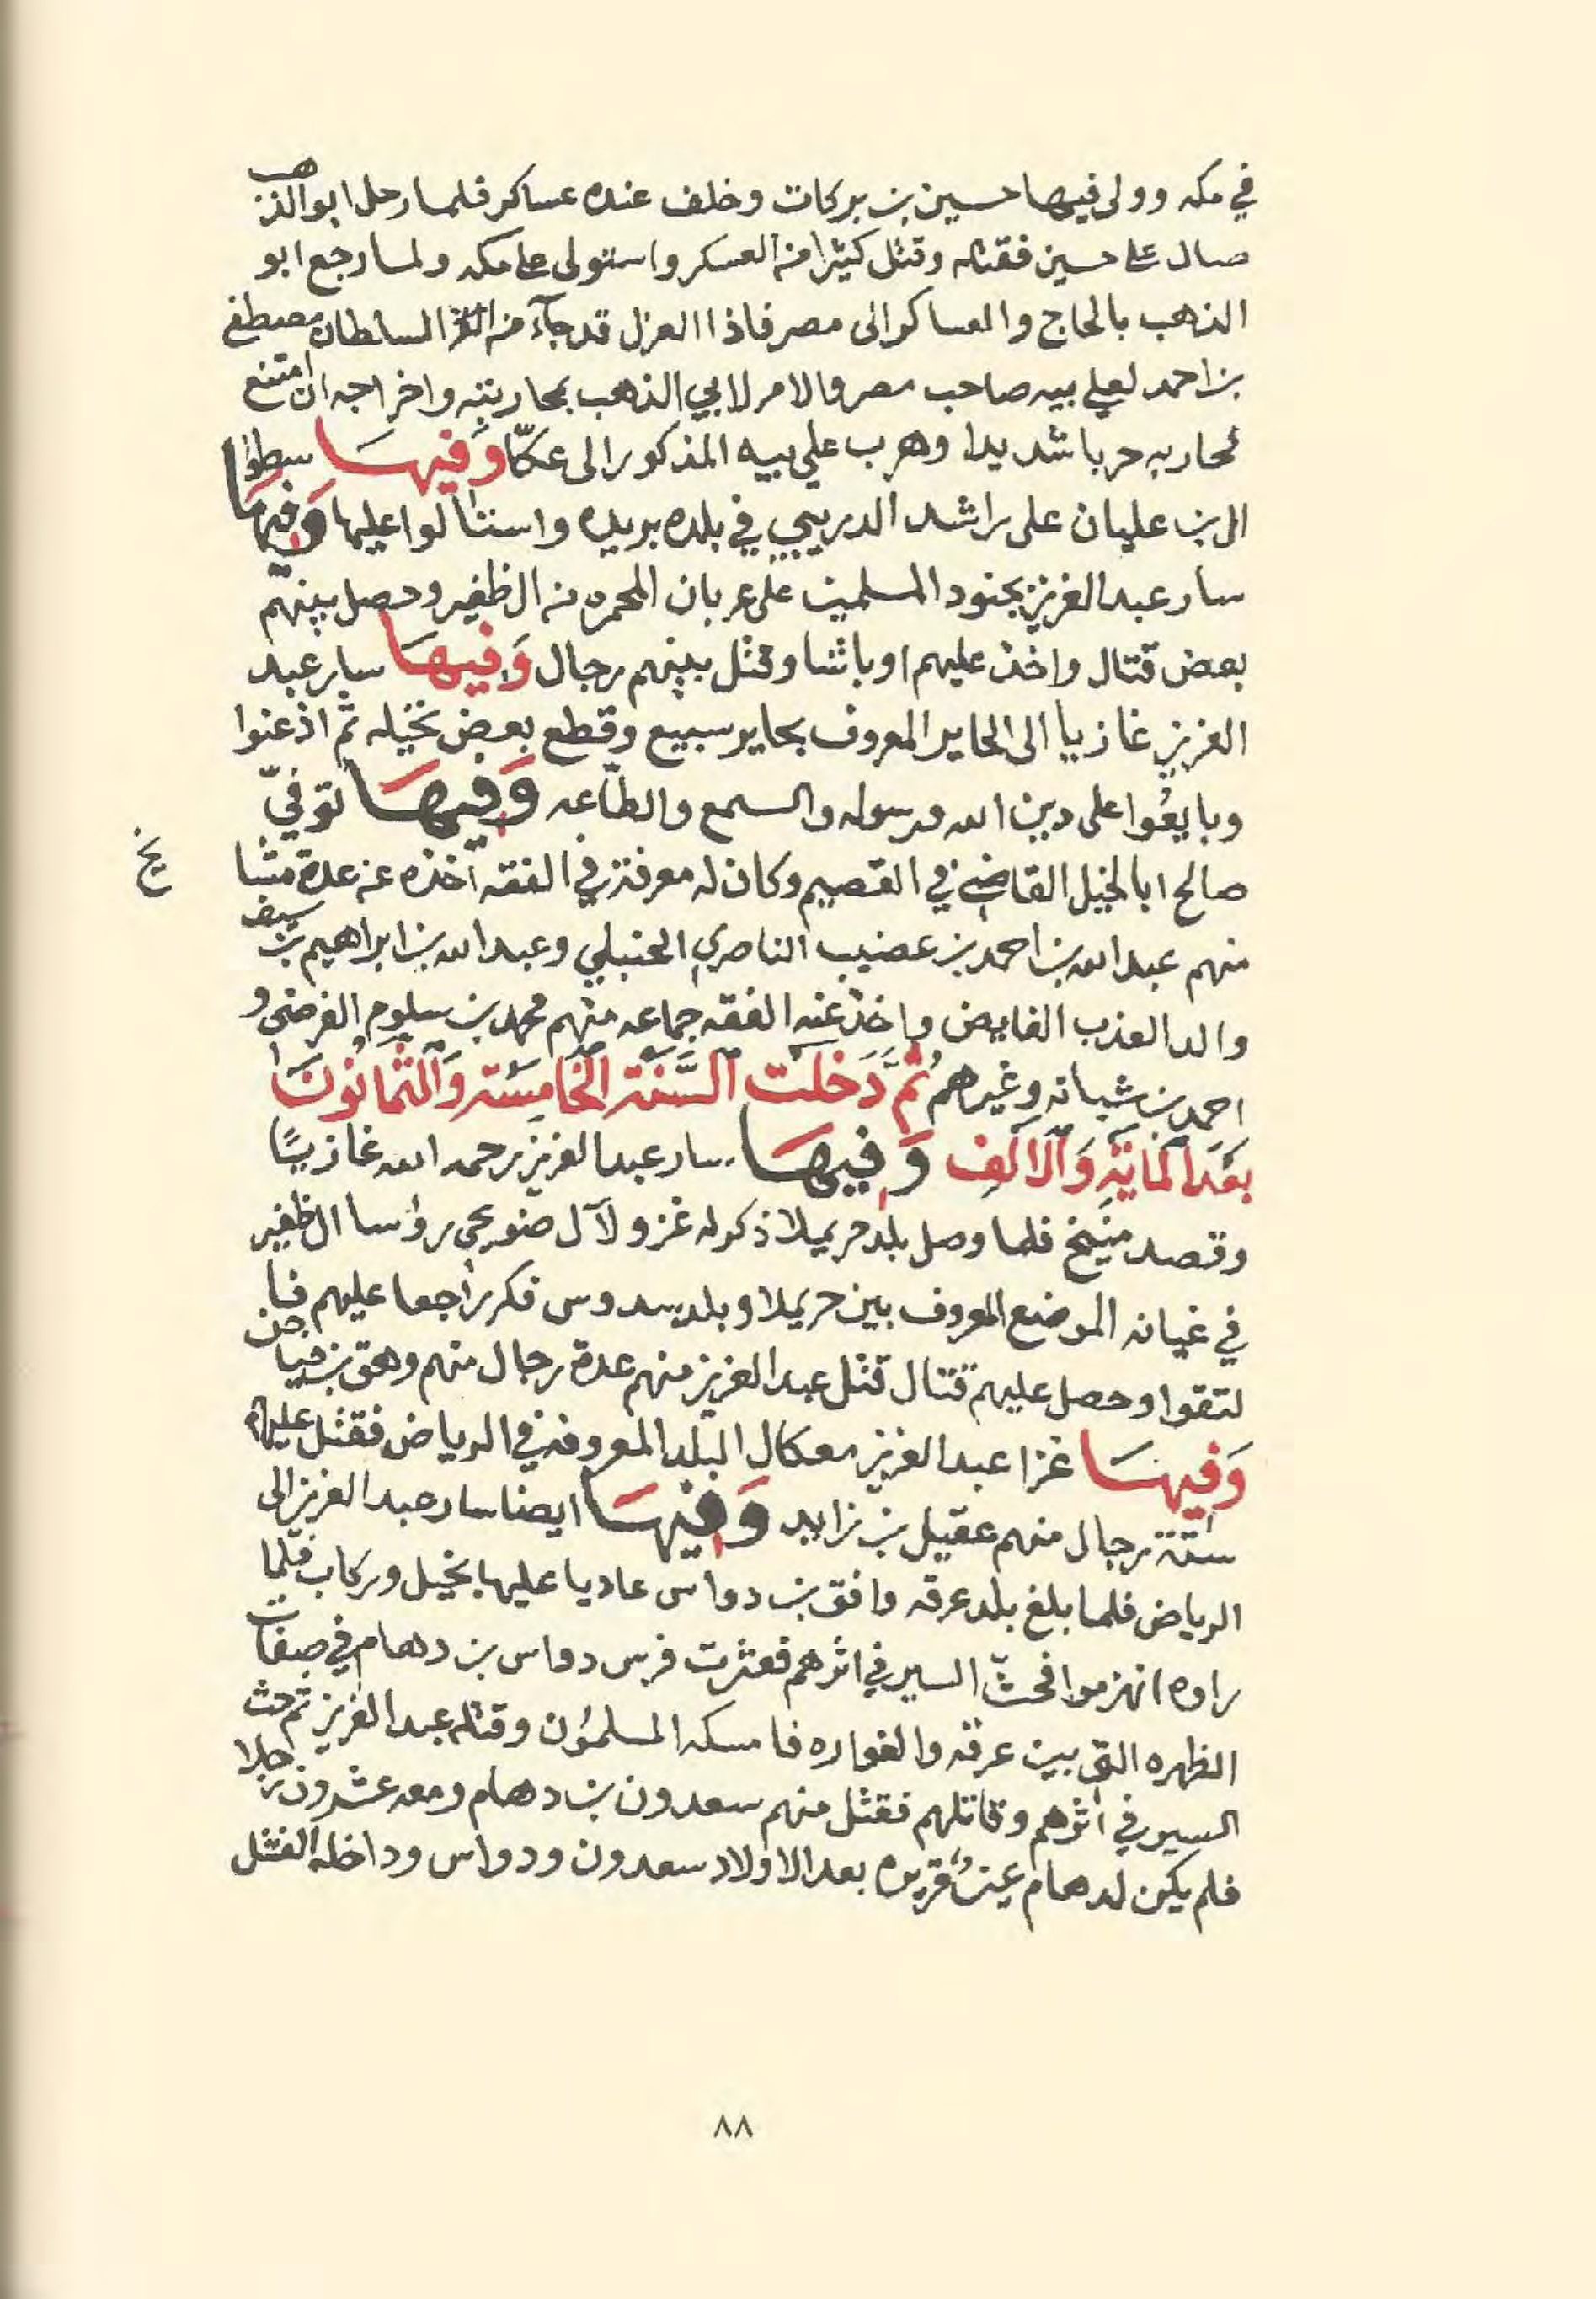 في مكه وولى فيها حسين بن بركات وخلف عنده عساكر فلما رحل ابو الذهب
صال على حسين فقتله وقتل كثيرا من العسكر واستولى على مكه ولما رجع ابو
الذهب بالحاج والعساكر الى مصر فاذا العزل قد جآء من السلطان مصطفى
بن احمد لعلي بيه صاحب مصر والامر لابي الذهب بمحاربته واخراجه ان امتنع
فحاربه حربا شديدا وهرب علي بيه المذكور الى عكّا وَفيهَا سطوا
ال بن عليان على راشد الدريبي في بلده بريده واستالوا عليها وَفيهَا
سار عبد العزيز بجنود المسلمين على عربان المحمره من ال ظفير وحصل بينهم
بعض قتال واخذ عليهم اوباشا وقتل بينهم رجال وَفيهَا سار عبد
العزيز غازيا الى الحاير المعروف بحاير سبيع وقطع بعض نخيله ثم اذعنوا
وبايعُوا على دين الله ورسوله والسمع والطّاعه وَفيهَا توفيّ
صالح ابا الخيل القاضي في القصيم وكان له معرفة في الفقه اخذه عن عدة مشا
يخ
منهم عبد الله بن احمد بن عضيب الناصري الحنبلي وعبد الله بن ابراهيم بن سيف
والد العذب الفايض واخذ عنه الفقه جماعه منهم محمد بن سلوم الفرضي و
احمد بن شبانه وغيرهم ثُمَّ دَخلَت السَّنَة الخَامِسَة وَالثَّمانُونَ
بَعْدَ المايَةِ وَالاَلف وَفيهَا سار عبد العزيز رحمه الله غازيًا
وقصد منيخ فلما وصل بلد حريملا ذكر له غزو لآل ضويحي رؤسا ال ظفير
في غيانه الموضع المعروف بين حريملا وبلد سدوس فكر راجعا عليهم فا
لتقوا وحصل عليهم قتال قتل عبد العزيز منهم عدة رجال منهم وهق بن فياض
وَفيهَا غزا عبد العزيز معكال البلد المعروفة في الرياض فقتل عليهم
ستة رجال منهم عقيل بن زايد وَفيهَا ايضا سار عبد العزيز الى
الرياض فلما بلغ بلد عرقه وافق بن دواس عاديا عليها بخيل وركاب فلمّا
راوه انهزموا فحثّ السير في اثرهم فعثرت فرس دواس بن دهام في صفات
الظهره التي بين عرقه والفواره فامسكه المسلمون وقتله عبد العزيز ثم حث
السير في اثرهم وقاتلهم فقتل منهم سعدون بن دهام ومعه عشرون رجلا
فلم يكن لدهام عينٌ قريره بعد الاولاد سعدون ودواس وداخله الفشل
٨٨